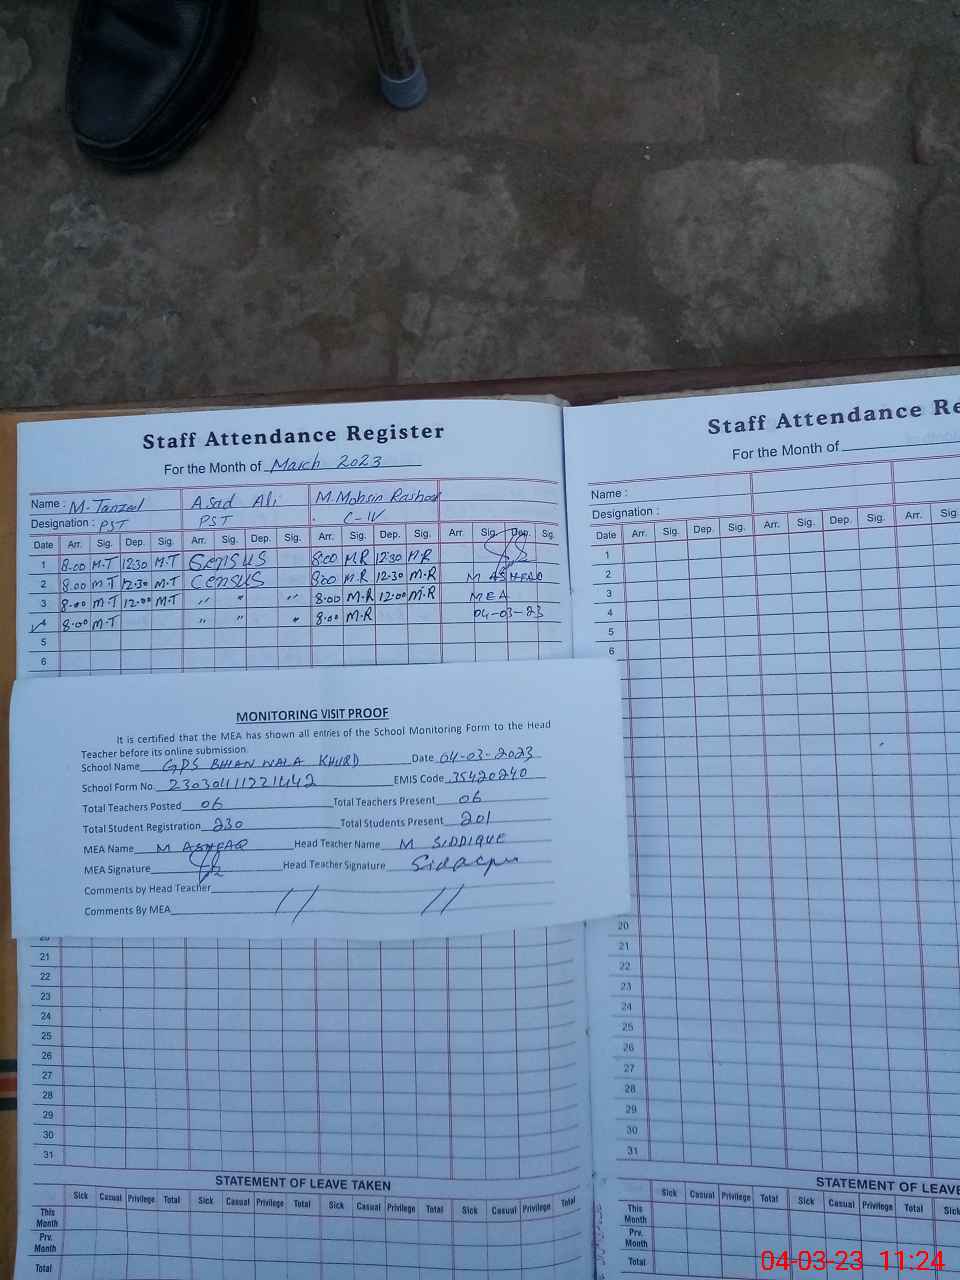 Staff Attendance Register
For the Month of March 2023
Name : M. Tanzeel Asad Ali M. Mohsin Rashad
Designation : PST PST C-IV
Date Arr. Sig. Dep. Sig. Arr. Sig. Dep. Sig. Arr. Sig. Dep. Sig. Arr. Sig. Dep. Sg.
1 8.00 M.T 12.30 M.T Census 8.00 M.R 12.30 M.R
2 8.00 M.T 12.30 M.T Census 8.00 M.R 12.30 M.R M ASHFAQ
3 8.00 M.T 12.00 M.T " " " 8.00 M.R 12.00 M.R MEA
4 8.00 M.T " " " 8.00 M.R 04-03-23
5
6
MONITORING VISIT PROOF
It is certified that the MEA has shown all entries of the School Monitoring Form to the Head
Teacher before its online submission.
School Name GPS BHAN WALA KHURD Date 04-03-2023
School Form No. 230304111221442 EMIS Code 35420240
Total Teachers Posted 06 Total Teachers Present 06
Total Student Registration 230 Total Students Present 201
MEA Name M ASHFAQ Head Teacher Name M SIDDIQUE
MEA Signature Head Teacher Signature
Comments by Head Teacher
Comments By MEA
20
21
22
23
24
25
26
27
28
29
30
31
STATEMENT OF LEAVE TAKEN
Sick Casual Privilege Total Sick Casual Privilege Total Sick Casual Privilege Total Sick Casual Privilege Total
This Month
Prv. Month
Total
Staff Attendance Re
For the Month of
Name :
Designation :
Date Arr. Sig. Dep. Sig. Arr. Sig. Dep. Sig. Arr. Sig
1
2
3
4
5
6
20
21
22
23
24
25
26
27
28
29
30
31
STATEMENT OF LEAVE
Sick Casual Privilege Total Sick Casual Privilege Total Sick
This Month
Prv. Month
Total
04-03-23 11:24